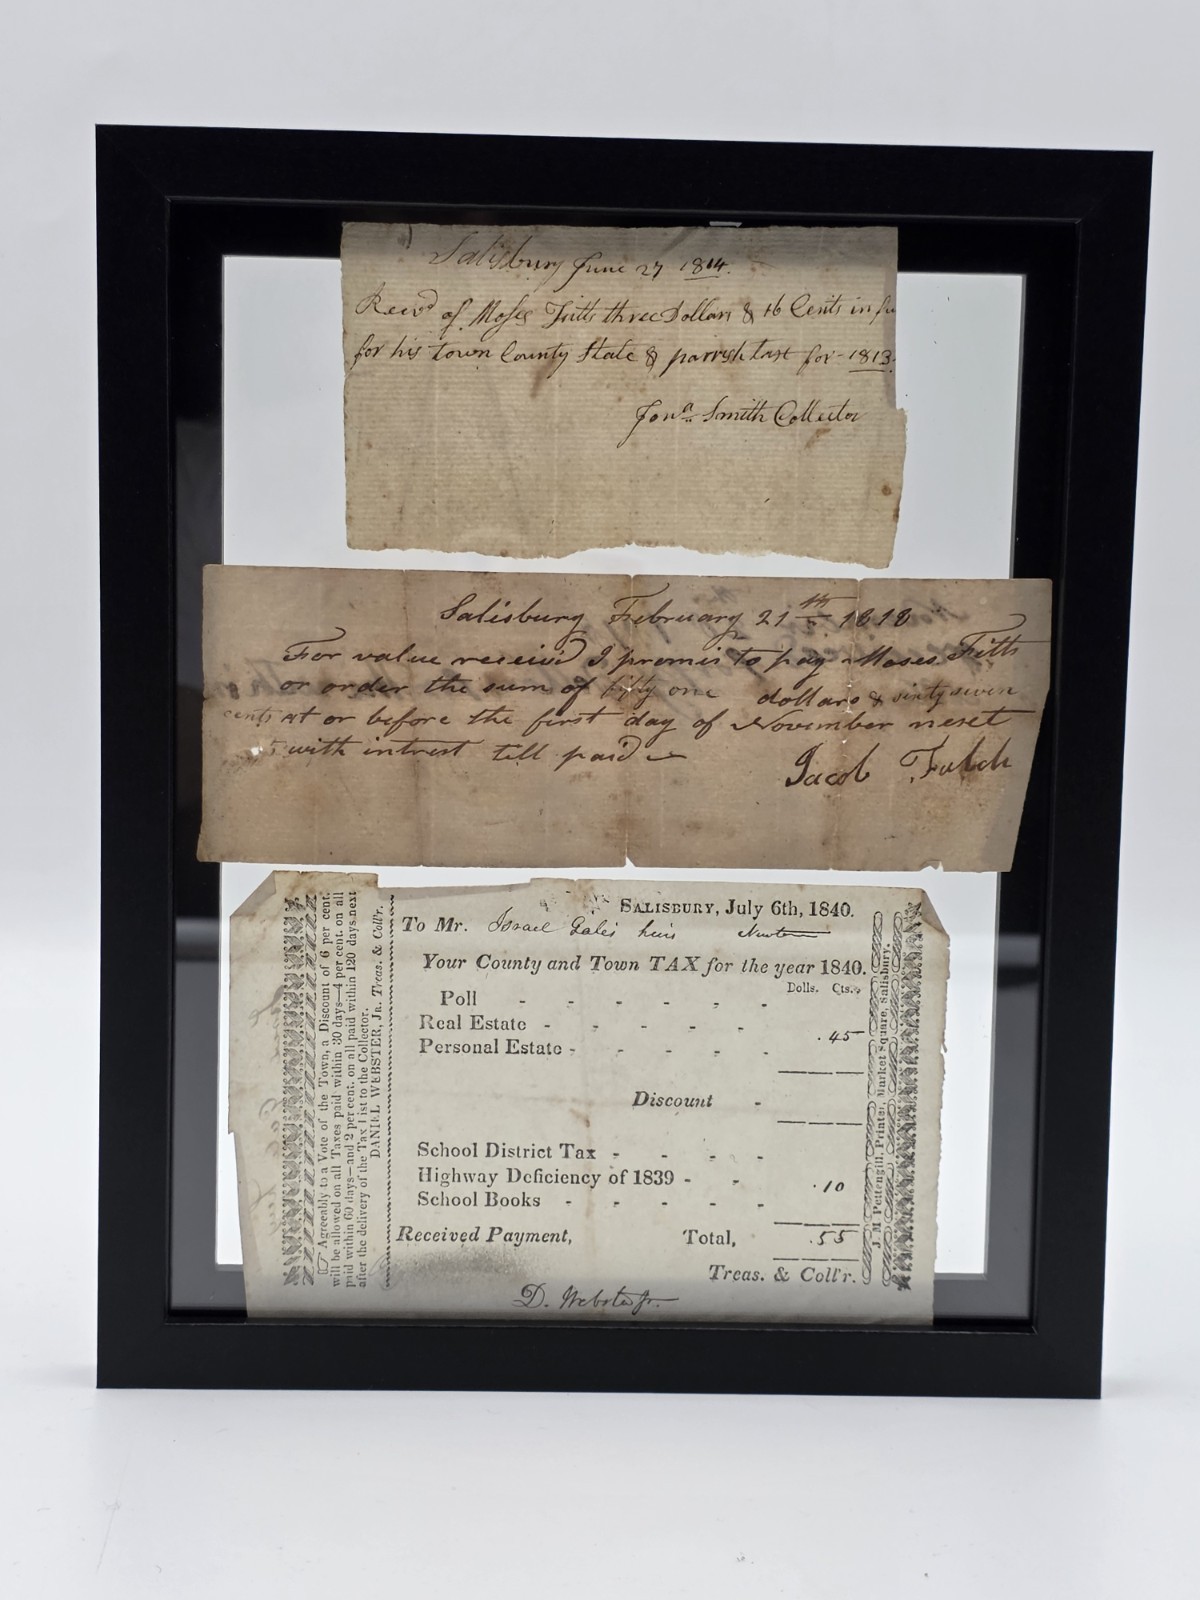 Salisbury June 27 1814.
Recvd of Moses Fitts three Dollars & 16 Cents in fu
for his town County State & parrish tax for 1813.
Jona Smith Collector
Salisbury February 21th 1818
For value receivd I promis to pay Moses Fitts
or order the sum of fifty one dollars & sixty seven
cents at or before the first day of November next
with intrest till paid
Jacob
SALISBURY, July 6th, 1840.
To Mr. Israel heirs
Your County and Town TAX for the year 1840.
Dolls. Cts.
Poll - - - - - -
Real Estate - - - - - .45
Personal Estate - - - - -
Discount -
School District Tax - - - -
Highway Deficiency of 1839 - - .10
School Books - - - - -
Received Payment, Total, .55
Treas. & Coll'r.
D. Webster Jr.
☞ Agreeably to a Vote of the Town, a Discount of 6 per cent.
will be allowed on all Taxes paid within 30 days—4 per cent. on all
paid within 60 days—and 2 per cent. on all paid within 120 days next
after the delivery of the Tax List to the Collector.
DANIEL WEBSTER, Jr. Treas. & Coll'r.
J. M Pettengill, Printer, Market Square, Salisbury.